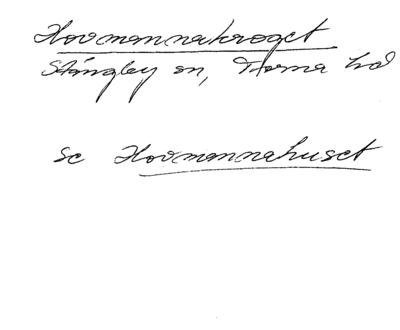 Hovmannakroget
Stångby sn, Torna hd
se Hovmannahuset